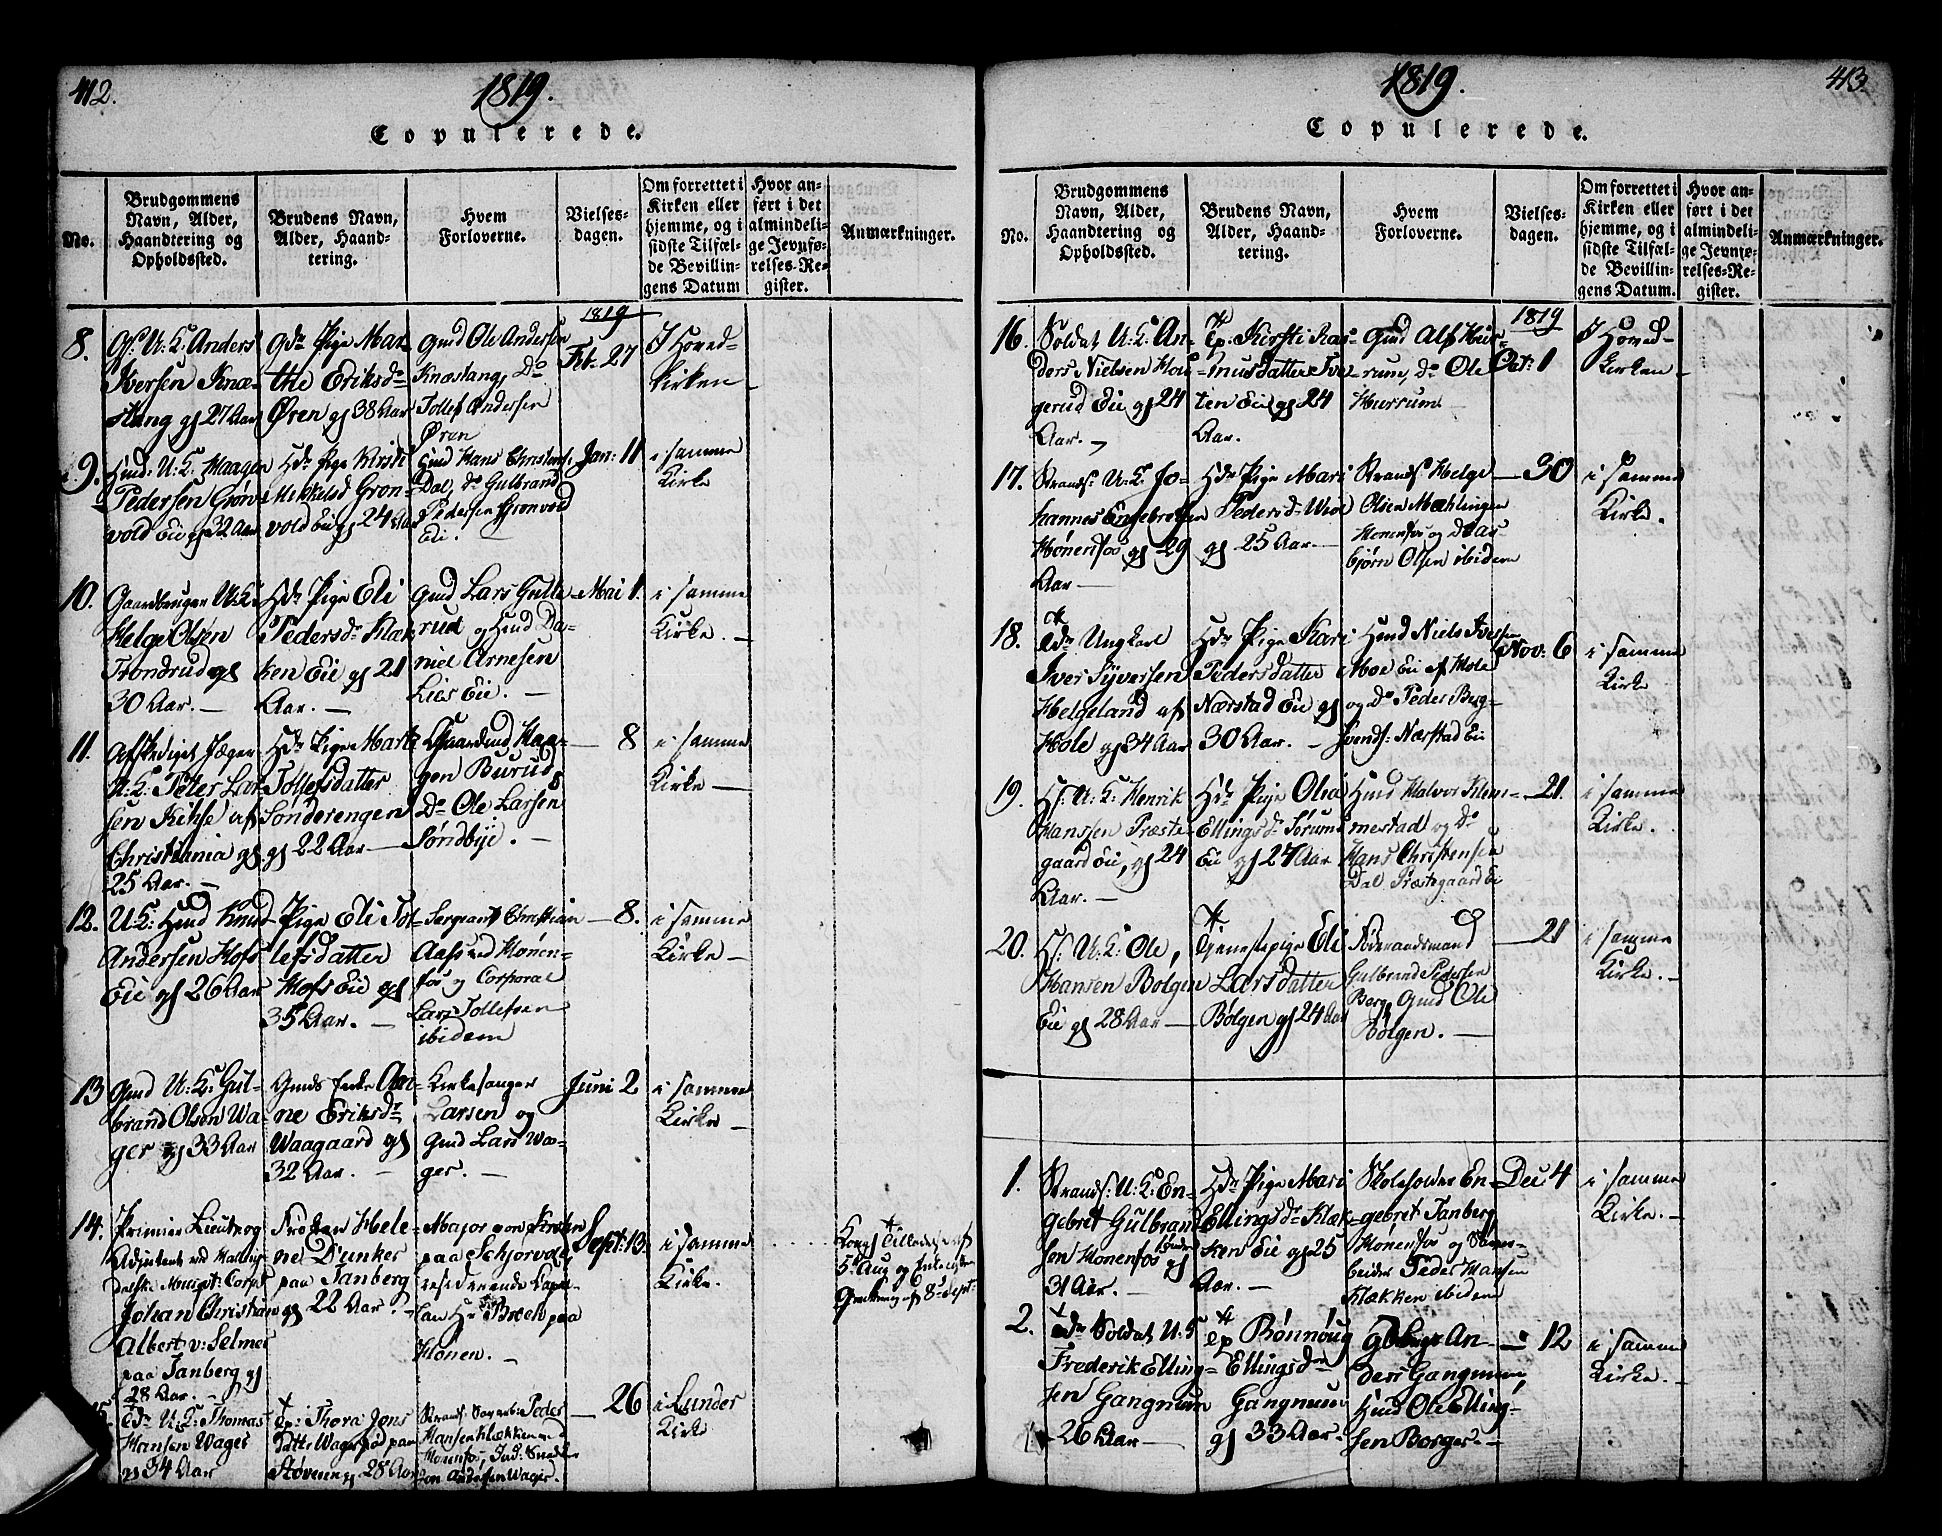 412.
1819.
Copulerede.
No.
Brudgommens
Navn, Alder,
Haandtering og
Opholdssted.
Brudens Navn,
Alder, Haand-
tering.
Hvem
Forloverne.
Vielses-
dagen.
Om forrettet i
Kirken eller
hjemme, og i
sidste Tilfæl-
de Bevillin-
gens Datum
Hvor an-
ført i det
almindeli-
ge Jevnfø-
relses-Re-
gister.
Anmærkninger.
1819
8.
Gs: U: K: Anders
Iversen Knæ-
stang gl 27 Aar
Gdr Pige Mar-
the Eriksdr
Øren gl 38 Aar
Gmd Ole Andersen
Knæstang, Do
Tollef Andersen
Øren
Feb: 27
I Hoved-
kirken
9.
Hmd: U: K: Haagen
Pedersen Grøn-
vold Eie gl 32 Aar
Hdr Pige Kirsti
Mikkelsd Grøn-
vold Eie gl 24 Aar
Hmd Hans Christens:
Dal, Do Gulbrand
Pedersen Grønvold
Eie.
Jan: 11
i samme
Kirke
10.
Gaardbruger U: K:
Helge Olsen
Trondrud gl
30 Aar.
Hdr Pige Eli
Pedersdr Klæk-
ken Eie gl 21
Aar.
Gmd Lars Gulle-
rud og Hmd Da-
niel Arnesen
Lies Eie.
Mai 1.
i samme
Kirke.
11.
Afskediget Jæger
U: K: Peter Lar-
sen Kihle af
Christiania gl
25 Aar.
Hdr Pige Marte
Tollefsdatter
Sønderengen
gl 22 Aar
Gaardmd Haa-
gen Burud
Do Ole Larsen
Søndbye.
8
i samme
Kirke
12.
U: K: Hmd Knud
Andersen Hofs
Eie gl 26 Aar
Pige Eli Tol-
lefsdatter
Hofs Eie gl
35 Aar.
Sergeant Christian
Aafs ved Hønen-
fos og Corporal
Lars Tollefsen
ibidem
8.
i samme
Kirke
13
Gmd U: K: Gul-
brand Olsen Wa-
ger gl 33 Aar
Gmds Enke An-
ne Eriksdr
Waagaard gl
32 Aar.
Kirkesanger
Larsen og
Gmd Lars Wa-
ger.
Juni 2
i samme
Kirke
14.
Premier Lieut: og
Adjutant ved
Corps
Johan Christian
Albert v: Selmer
paa Tanberg gl
28 Aar.
Frøken Hele-
ne Dunker
paa Tanberg
gl 22 Aar.
Major von Krogh
paa Schjørvold,
residerende Capel-
lan Hr Broch paa
Hønen.
Sept: 13.
i samme
Kirke.
Kongl Tilladelse af
5 Aug og
af 8de Sept:
15.
Tdr U: K: Thomas
Hansen Wager
gl 34 Aar
Tp: Thora Jons
Datter Wager fød paa
Støveren gl 28 Aar
Peder
Hansen Klækken ved
Hønenfos,
Andersen Wager.
26
i Lunder
Kirke
413.
1819.
Copulerede.
No.
Brudgommens
Navn, Alder,
Haandtering og
Opholdssted.
Brudens Navn,
Alder, Haand-
tering.
Hvem
Forloverne.
Vielses-
dagen.
Om forrettet i
Kirken eller
hjemme, og i
sidste Tilfæl-
de Bevillin-
gens Datum.
Hvor an-
ført i det
almindeli-
ge Jevnfø-
relses-Re-
gister.
Anmærkninger.
1819
16.
Soldat U: K: An-
ders Nielsen Hou-
gerud Eie gl 24
Aar.
Tp: Kirsti Ras-
musdatter Tve-
ten Eie gl 24
Aar.
Gmd Alf Hur-
rum, do Ole
Hurrum
Oct: 1
I Hoved-
Kirken
17.
Strands: U: K: Jo-
hannes Engebretsen
Hønenfos gl 29
Aar
Hdr Pige Mari
Pedersd: Hvel
gl 25 Aar.
Strands: Helge
Olsen Mæhlingen
Hønenfos og do As-
bjørn Olsen ibidem
30
i samme
Kirke.
18.
Tdr Ungkarl
Iver Syversen
Helgeland af
Hole gl 34 Aar
Hdr Pige Kari
Pedersdatter
Nærstad Eie gl
30 Aar.
Hmd Niels Iversen
Moe Eie af Hole
og do Peder Berg-
svends: Nærstad Eie
Nov: 6
i samme
Kirke
19.
Hs: U: K: Henrik
Hanssen Præste-
gaard Eie, gl 24
Aar.
Hdr Pige Olia
Ellingsdr Sørum
Eie gl 27 Aar
Hmd Halvor Klem-
mestad og do
Hans Christensen
Dal Præstegaard Eie
21.
i samme
Kirke.
20.
Hs: U: K: Ole,
Hansen Bølgen
Eie gl 28 Aar
Tjenestepige Eli
Larsdatter
Bølgen gl 24 Aar
Føderaadsmand
Gulbrand Pedersen
Berg, Gmd Ole
Bølgen.
21
i samme
Kirke.
1.
Strands: U: K: En-
gebret Gulbrand-
sen Hønenfos Søndre gl
31 Aar.
Hdr Pige Mari
Ellingsdr Klæk-
ken Eie gl 25
Aar.
Skoleholder En-
gebret Tanberg
Hønenfos og
beider Peder Hansen
Klækken ibidem
Dec 4
i samme
Kirke.
2.
Tdr Soldat U: K
Frederik Elling-
sen Gangnum
26 Aar
Tp Rønnoug
Ellingsdr
Gangnum
gl 33 Aar.
An-
ders Gangnum,
Hmd Ole Elling-
sen Borger.
12
i samme
Kirke.